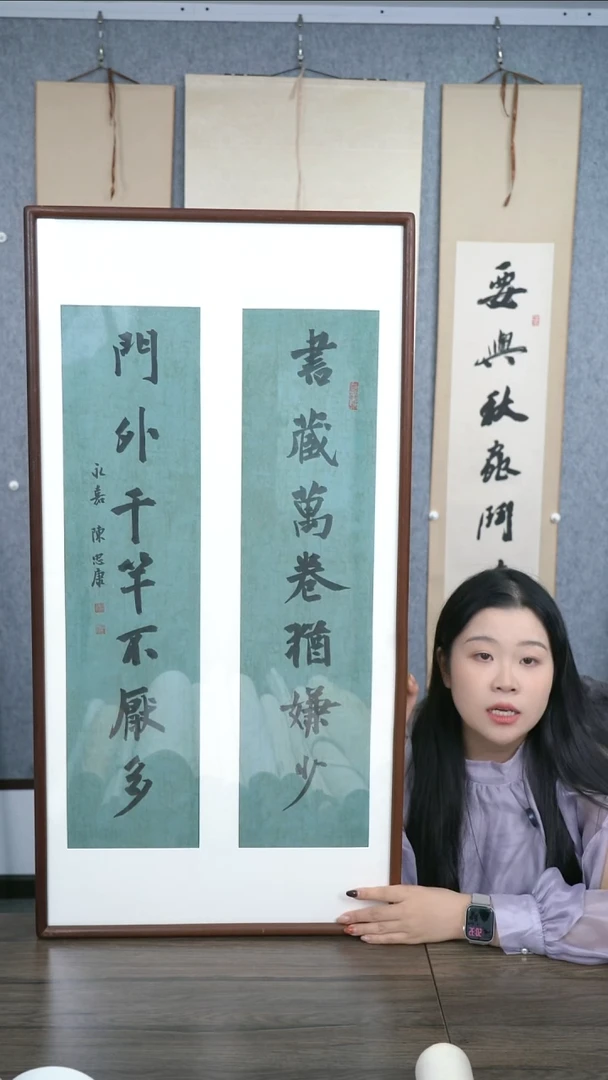 要與秋鬥
書藏萬卷猶嫌少
門外千竿不厭多
永嘉 陳忠康